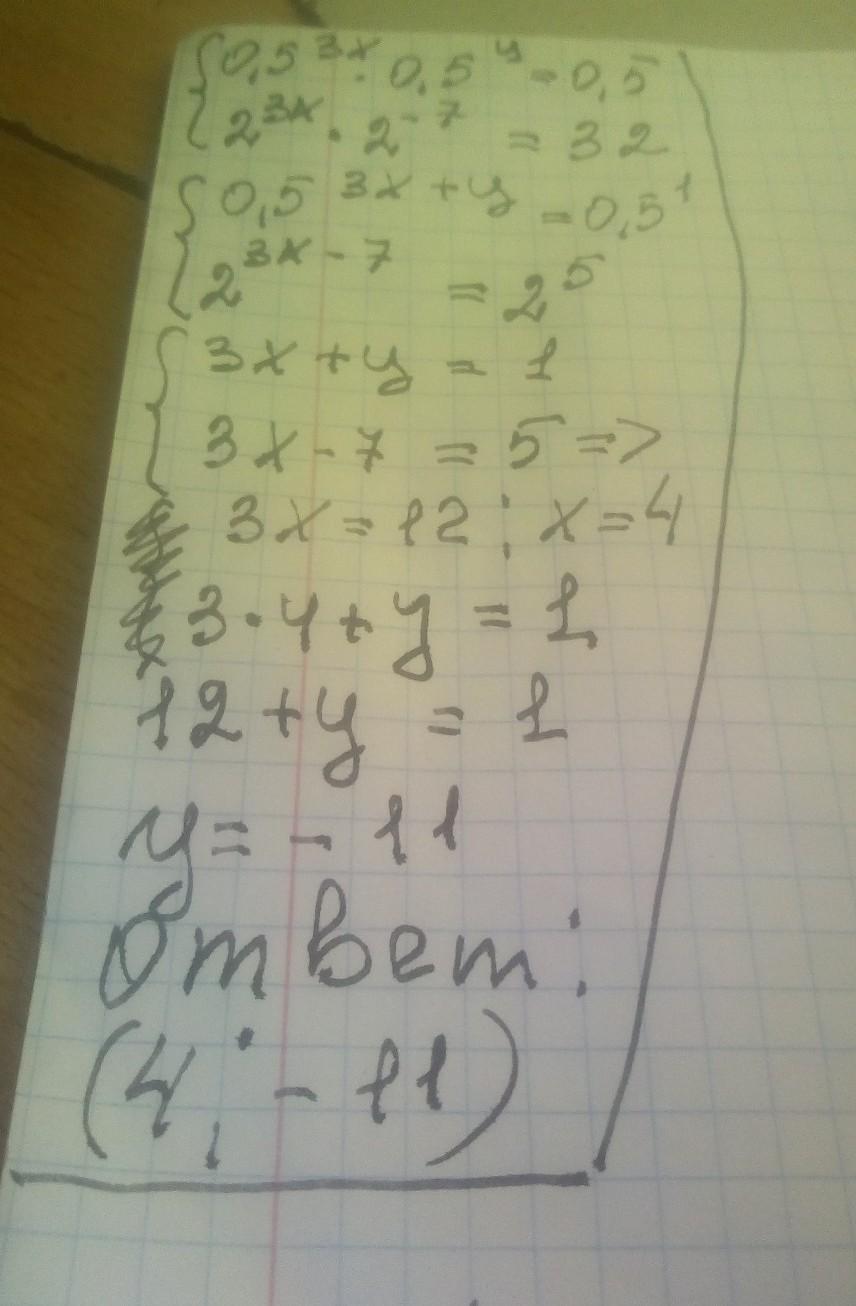 {0,5^3x · 0,5^y = 0,5
{2^3x · 2^-7 = 32
{0,5^3x + y = 0,5^1
{2^3x - 7 = 2^5
{3x + y = 1
3x - 7 = 5 =>
3x = 12; x = 4
3 · 4 + y = 1
12 + y = 1
y = - 11
Ответ:
(4; - 11)